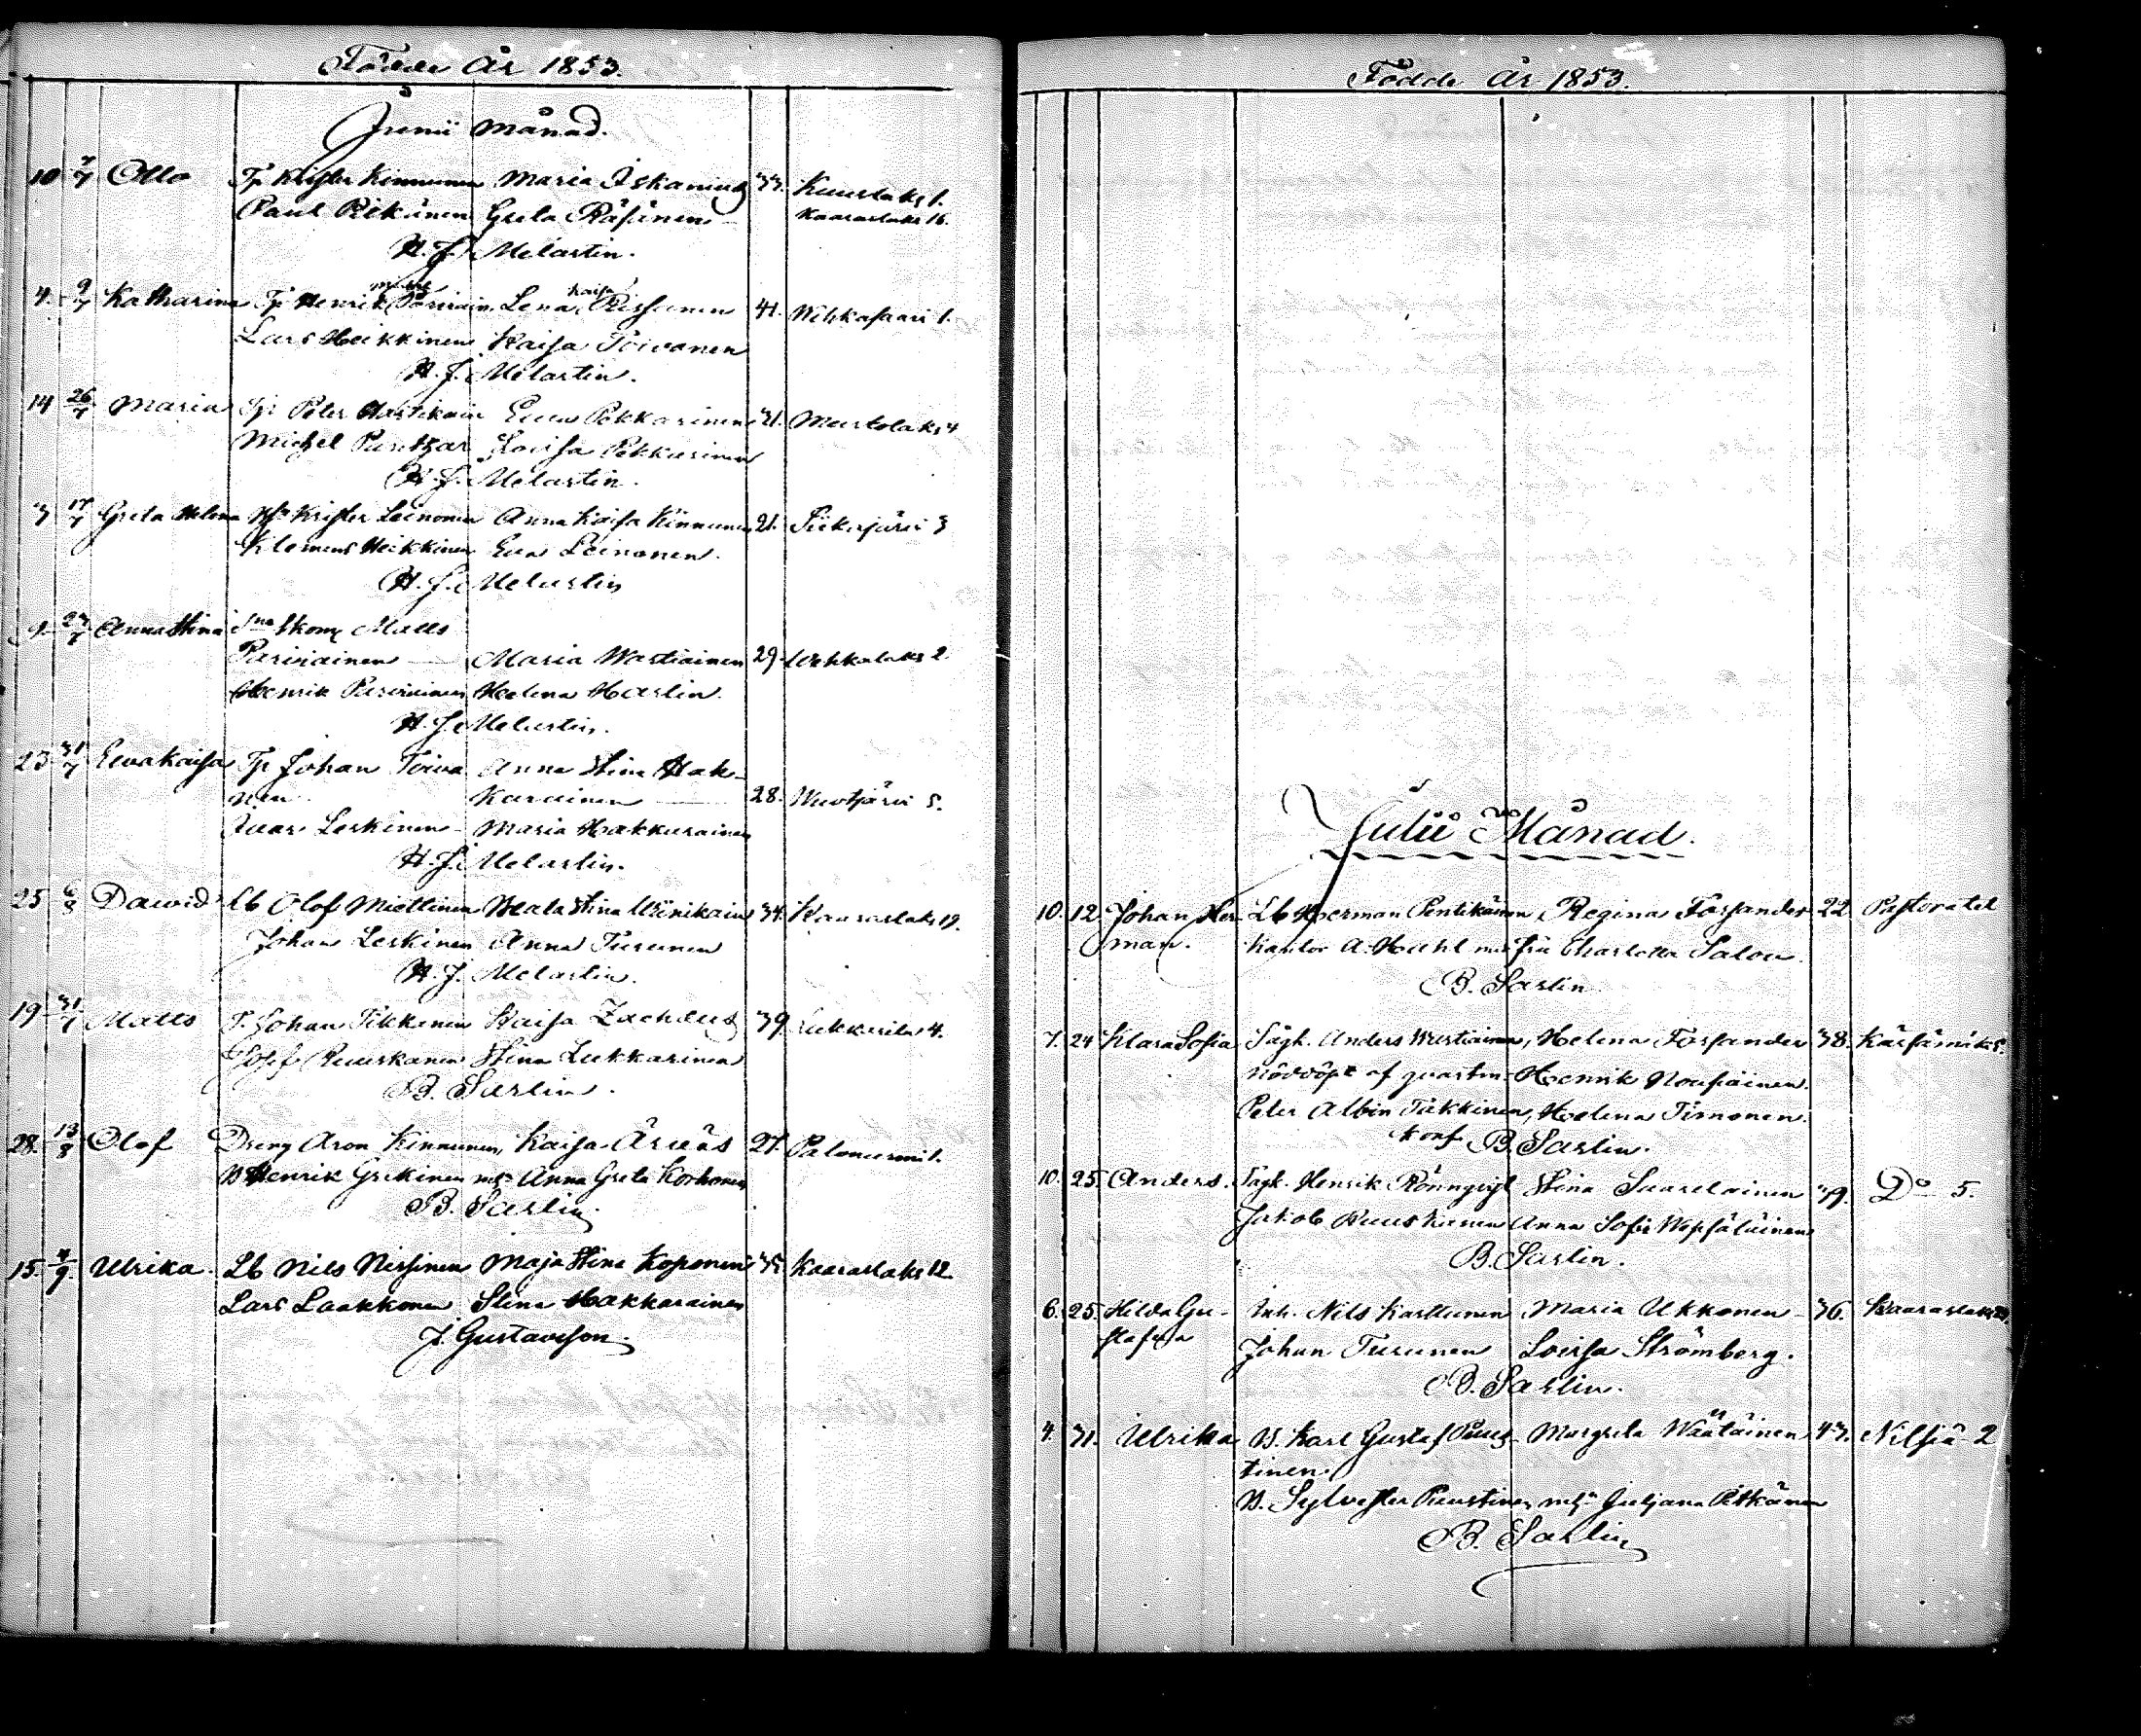 Födde År 1853.
Junii månad.
10 7/7 Otto Tp Krister Kinnunen Maria Iskanius 33. Kuuslaks 1.
Paul Pitkänen Greta Räsänen Kaaraslaks 16.
H. J. Melartin.
4. 9/7 Katharina Tp Henrik Parviain. Lena Kaisa Rissanen 41. Wehkasaari 1.
Lars Heikkinen Kaisa Toivanen
H. J. Melartin.
14 26/7 Maria Tp Peter Hartikain Eva Pekkarinen 31. Mustolaks 4
Michel Lovisa Pekkarinen
H. J. Melartin.
3 17/7 Greta Helena Krister Leinonen Anna Kaisa Kinnunen 21. Siikajärvi 3
Klemens Heikkinen Eva Leinonen.
H. J. Melartin
9. 27/7 Anna Stina Skom. Matts
Parviainen — Maria Wartiainen 29. Wehkalaks 2.
Henrik Parviainen Helena Harlin.
H. J. Melartin.
23 31/7 Eva Kaisa Tp Johan Toiva Anna Stina Hak-
nen. karainen — 28. Wuotjärvi 5.
Ivar Leskinen Maria Hakkarainen
H. J. Melartin.
25 6/8 Dawid Lb Olof Miettinen Beata Stina Wänikain 34. Kaaraslaks 19.
Johan Leskinen Anna Turunen
H. J. Melartin.
19 31/7 Matts T. Johan Tikkanen Kaisa Zacheus 39. Lukkarila 4.
Josef Ruuskanen Stina Lukkarinen
B. Sarlin.
28. 13/8 Olof Dreng Aron Kinnunen, Kaisa Ärväs 27. Palonurmi 1.
B Henrik mh Anna Greta Korhonen
B. Sarlin.
15. 4/9. Ulrika. Lb Nils Nissinen Maja Stina Koponen 35. Kaaraslaks 12.
Lars Laakkonen Stina Hakkarainen
J. Gustavson.
Födde År 1853.
Julii Månad.
10. 12. Johan Her- Lb Herman Pentikäinen, Regina Forsander 22. Pastoratet
man. Kantor A. Hahl med fru Charlotta Salou.
B. Sarlin.
7. 24 Klara Sofia Sågk. Anders Wartiainen, Helena Forsander 38. Kärsämäki 5.
nöddöpt af Henrik Nousiainen.
Peter Albin Takkinen, Helena Timonen.
konf. B. Sarlin.
10. 25. Anders. Sågk. Henrik Rönnqvist Stina Saarelainen 39. Do 5.
Jakob Ruuskanen Anna Sofia Wepsäläinen
B. Sarlin.
6. 25. Hilda Gu- Inh. Nils Karttunen Maria Ukkonen 36. Kaaraslaks
stafva Johan Turunen Lovisa Strömberg.
B. Sarlin.
4. 31. Ulrika B. Karl Gustaf Puus- Margreta Wäätäinen 43. Nilsiä 2
tinen.
B. Sylvester Puustinen mh Juljana Pitkänen
B. Sarlin